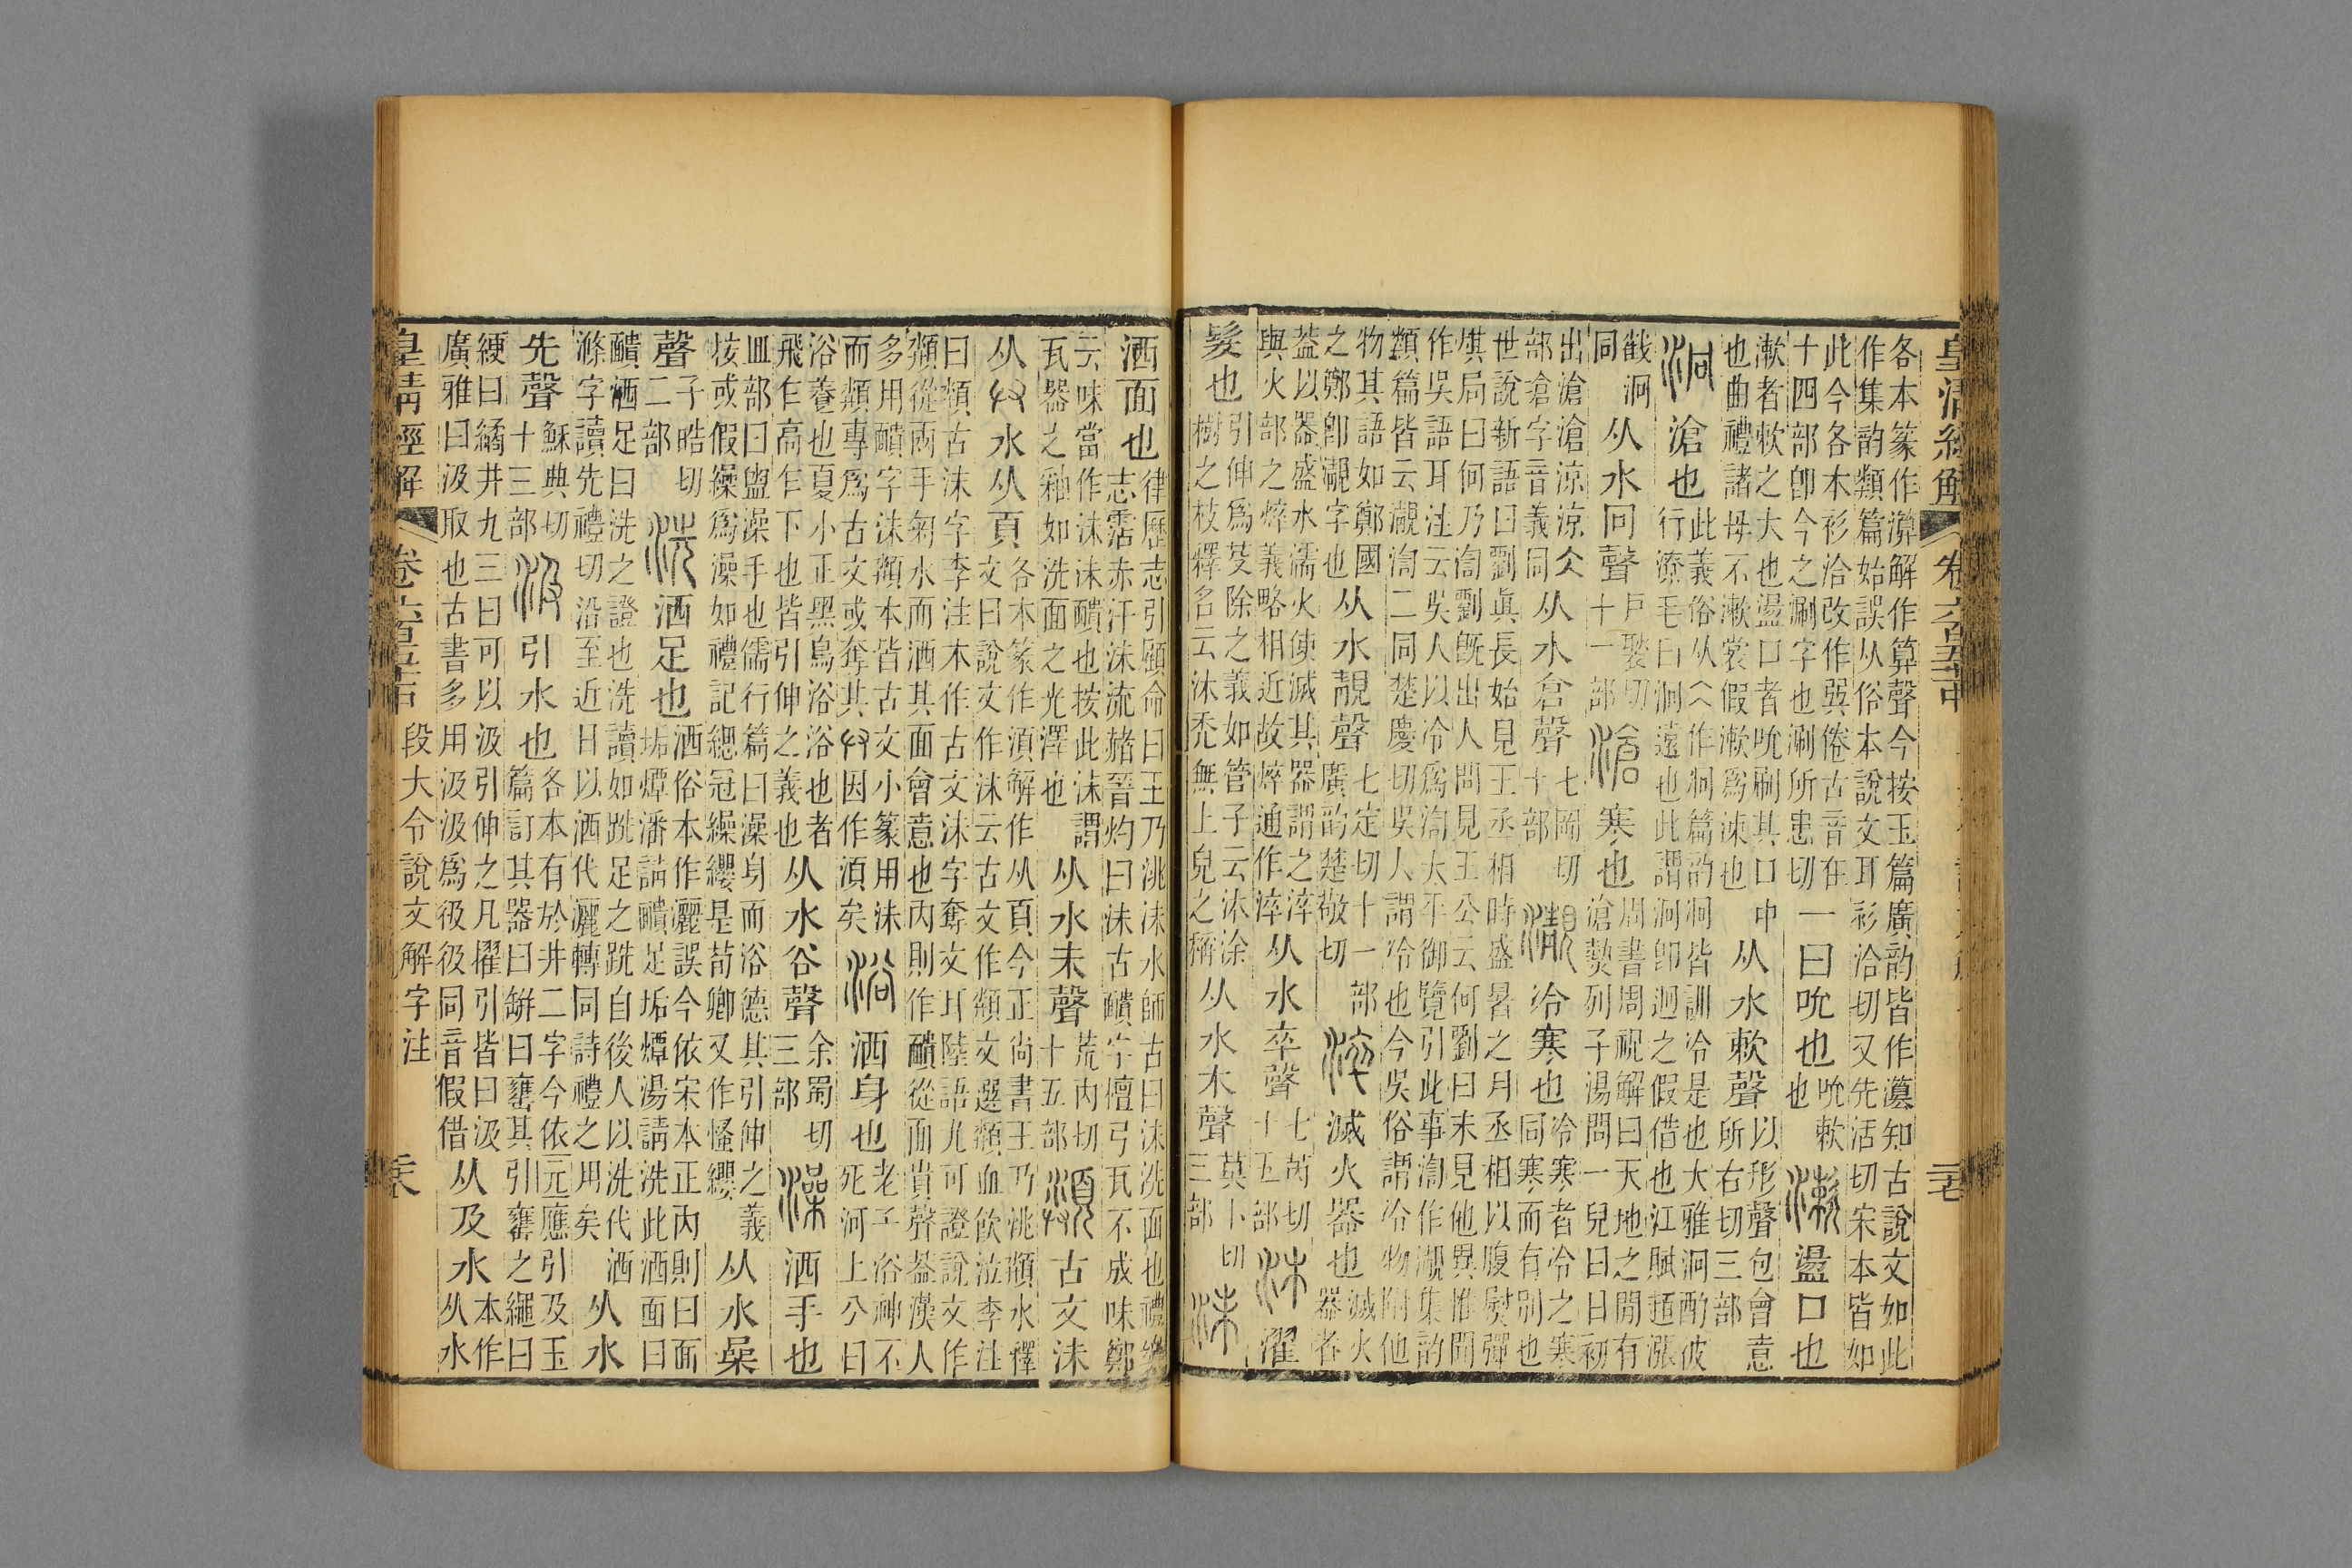 皇清經解
各本篆作 解作算聲今按玉篇廣韵皆作 知古說文如此
作集韵類篇始誤从俗本說文耳衫洽切又先活切宋本皆如
此今各本衫洽改作㢲倦古音在
十四部卽今之涮字也涮所患切
一曰吮也
吮欶
也
漱盪口也
漱者欶之大也盪口者吮刷其口中
也曲禮諸母不漱裳假漱爲涑也
从水欶聲
以形聲包會意
所右切三部
泂滄也
此義俗从仌作泂篇韵泂皆訓冷是也大雅泂酌彼
行潦毛曰泂遠也此謂泂卽迥之假借也江賦 漲
截泂
同
从水冋聲
戶褧切
十一部
滄寒也
周書周祝解曰天地之閒有
滄𤍠列子湯問一兒曰日初
出滄滄涼涼仌
部滄字音義同
从水倉聲
七岡切
十部
瀙冷寒也
冷寒者冷之寒
同寒而有別也
世說新語曰劉眞長始見王丞相時盛暑之月丞相以腹熨彈
棋局曰何乃渹劉旣出人問見王公云何劉曰未見他異惟聞
作吳語耳注云吳人以冷爲渹太平御覽引此事渹作瀙集韵
類篇皆云瀙渹二同楚慶切吳人謂冷也今吳俗謂冷物附他
物其語如鄭國
之鄭卽瀙字也
从水靚聲
七定切十一部
廣韵楚敬切
淬滅火器也
滅火
器者
葢以器盛水濡火使滅其器謂之淬
與火部之焠義略相近故焠通作淬
从水卒聲
七芮切
十五部
沐濯
髮也
引伸爲芟除之義如管子云沐涂
樹之枝釋名云沐禿無上皃之稱
从水木聲
莫卜切
三部
沬
洒面也
律歷志引顧命曰王乃洮沬水師古曰沬洗面也禮樂
志霑赤汗沬流赭晉灼曰沬古靧字檀弓瓦不成味鄭
云味當作沬沬靧也按此沬謂
瓦器之釉如洗面之光澤也
从水未聲
荒內切
十五部
湏古文沬
从𠬞水从頁
各本篆作湏解作从頁今正尚書王乃洮頮水釋
文曰說文作沬云古文作頮文選頮血飮泣李注
曰頮古沬字李注本作古文沬字奪文耳陸語尤可證說文作
頮從兩手匊水而洒其面會意也內則作靧從面貴聲葢漢人
多用靧字沬頮本皆古文小篆用沬
而頮專爲古文或奪其𠬞因作湏矣
浴洒身也
老子浴神不
死河上公曰
浴養也夏小正黑鳥浴浴也者
飛乍高乍下也皆引伸之義也
从水谷聲
余蜀切
三部
澡洒手也
皿部曰盥澡手也儒行篇曰澡身而浴德其引伸之義
按或假繰爲澡如禮記緦冠繰纓是荀卿又作慅纓
从水喿
聲
子晧切
二部
洗洒足也
洒俗本作灑誤今依宋本正內則曰面
垢燂潘請靧足垢燂湯請洗此洒面曰
靧洒足曰洗之證也洗讀如跣足之跣自後人以洗代洒
滌字讀先禮切沿至近日以洒代灑轉同詩禮之用矣
从水
先聲
穌典切
十三部
汲引水也
各本有於井二字今依元應引及玉
篇訂其器曰缾曰罋其引罋之繩曰
綆曰繘井九三曰可以汲引伸之凡擢引皆曰汲
廣雅曰汲取也古書多用汲汲爲彶彶同音假借
从及水
本作
从水
皇清經解
段大令說文解字注